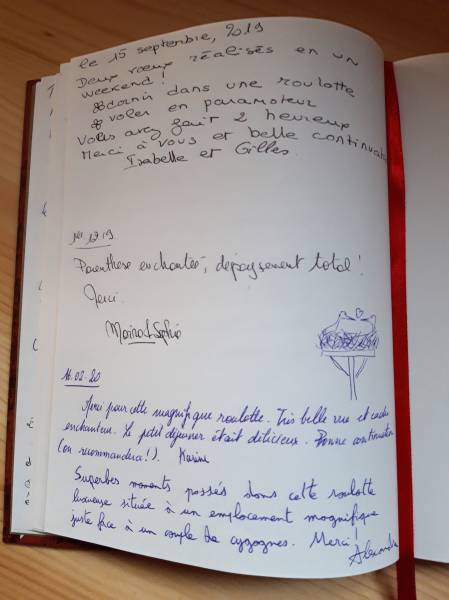 le 15 septembre, 2019
Deux vœux réalisés en un
weekend!
dormir dans une roulotte
voler en paramoteur
Vous avez fait 2 heureux
Merci à vous et belle continuat
Isabelle et Gilles.
Parenthèse enchantée, dépaysement total!
Merci.
16-02-20
Merci pour cette magnifique roulotte. Très belle vue et cadre
enchanteur. Le petit déjeuner était délicieux. Bonne continuation
(on recommandera!). Karine
Superbes moments passés dans cette roulotte
luxueuse située à un emplacement magnifique
juste face à un couple de cygognes. Merci!
Alexandre